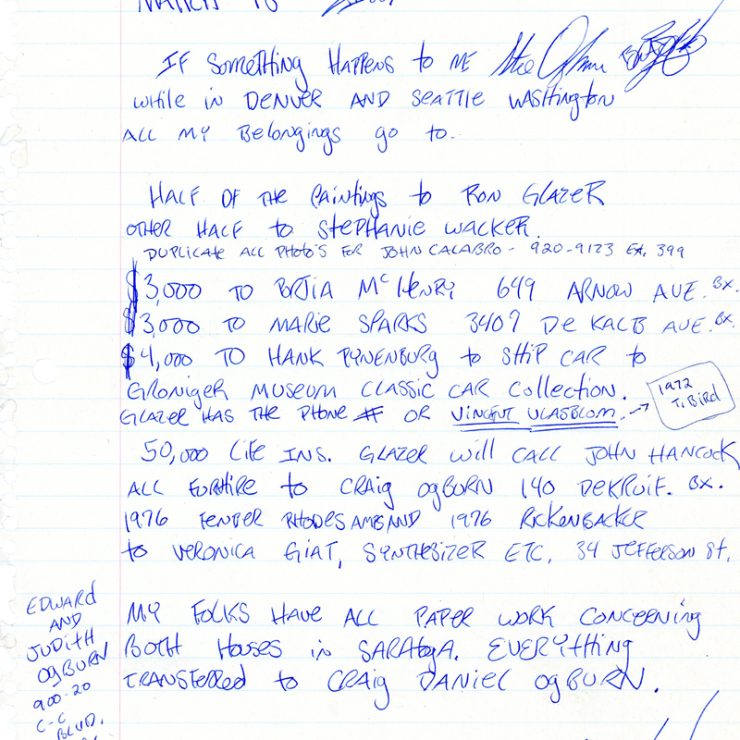 MARCH 18
IF SOMETHING HAPPENS TO ME
WHILE IN DENVER AND SEATTLE WASHINGTON
ALL MY BELONGINGS go to.
HALF OF THE PAINTINGS to RON GLAZER
OTHER HALF to STEPHANIE WACKER.
DUPLICATE ALL PHOTO'S FOR JOHN CALABRO - 920-9123 EX. 399
$3,000 TO McHENRY 649 ARNOW AVE. BX.
$3,000 TO MARIE SPARKS 3407 DE KALB AVE. BX.
$4,000 TO HANK PYNENBURG to SHIP CAR to
GRONIGER MUSEUM CLASSIC CAR COLLECTION.
GLAZER HAS THE PHONE # OR VINCENT VLASBLOM. → 1972 T. BIRD
50,000 LIFE INS. GLAZER will CALL JOHN HANCOCK
ALL to CRAIG OGBURN 140 DEKRUIF. BX.
1976 FENDER RHODES AMP AND 1976 RICKENBACKER
to VERONICA GIAT, SYNTHESIZER ETC. 34 JEFFERSON St.
MY FOLKS HAVE ALL PAPER WORK CONCERNING
BOTH HOUSES in SARATOGA. EVERYTHING
TRANSFERRED to CRAIG DANIEL OGBURN.
EDWARD
AND
JUDITH
OGBURN
900-20
C-C
BLVD.